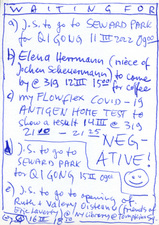 WAITING FOR
a) J.S. to go to SEWARD PARK
for QI GONG 11 III 2022 0900
b) Elena Herrmann (niece of
Jochen Scheuermann) to come
by @ 319 12 III 1500 for coffee
c) my FLOWFLEX COVID-19
ANTIGEN HOME TEST to
show a result 14 III @ 319
2110 - 2125
NEG-
ATIVE!
d) J.S. to go to
SEWARD PARK
for QI GONG 15 III 0900
e) J.S. to go to opening of
Ruth & Valery Oisteanu (friends of
@ NY Library @ Tompkins Sq.
16 III